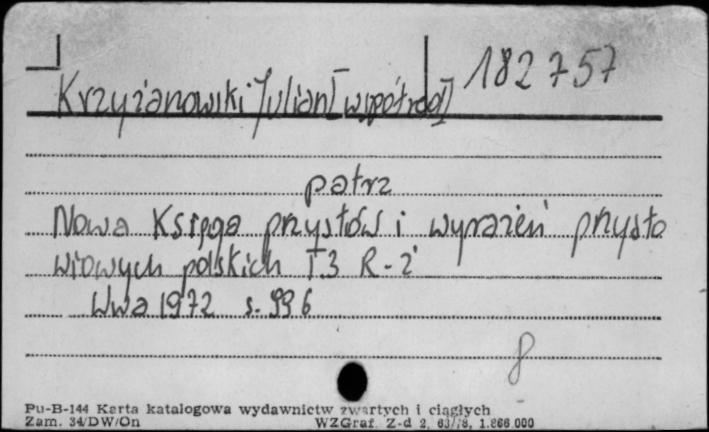 182757
Krzyżanowski Julian [współred]
patrz
Nowa Księga przysłów i wyrażeń przysło
wiowych polskich T.3 R-Ż
Wwa 1972 s. 996
8
Pu-B-144 Karta katalogowa wydawnictw zwartych i ciągłych
Zam. 34/DW/On WZGraf. Z-d 2, 63/78, 1.866.000